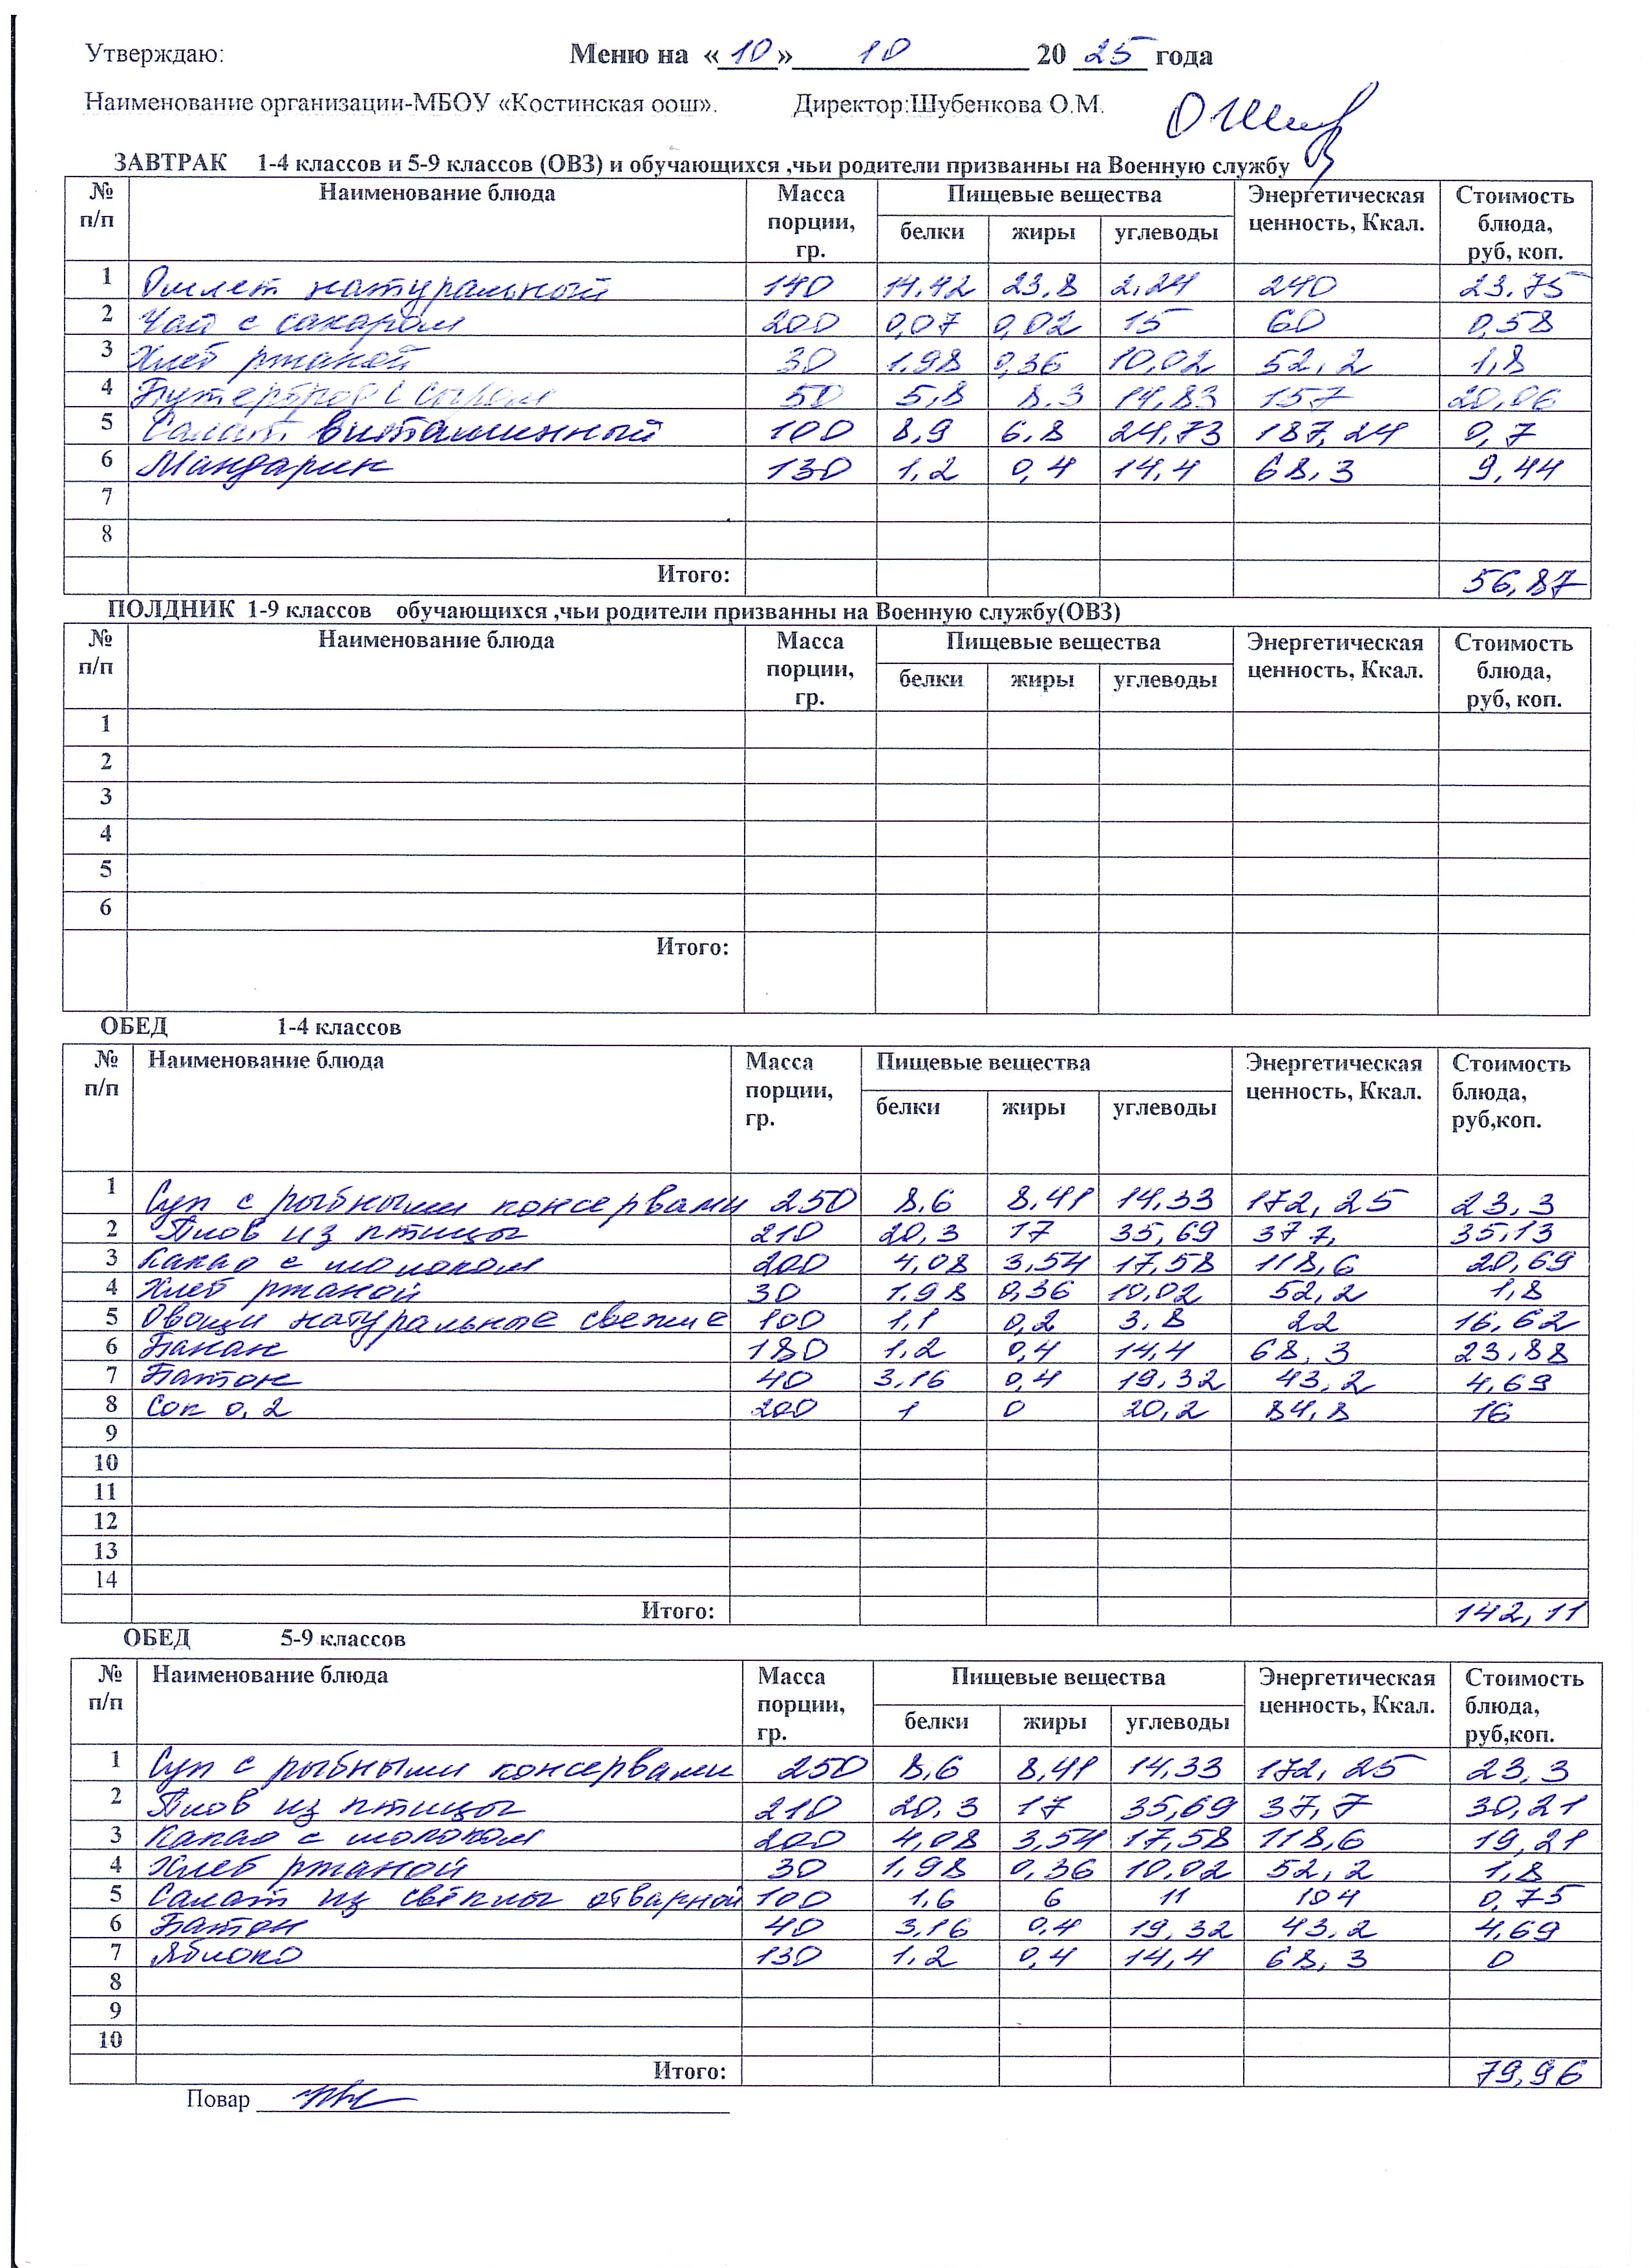 Утверждаю: Меню на «10» 10 20 25 года
Наименование организации-МБОУ «Костинская оош». Директор:Шубенкова О.М.
ЗАВТРАК 1-4 классов и 5-9 классов (ОВЗ) и обучающихся ,чьи родители призванны на Военную службу
№ п/п Наименование блюда Масса порции, гр. Пищевые вещества Энергетическая ценность, Ккал. Стоимость блюда, руб, коп.
белки жиры углеводы
1 Омлет натуральный 140 14,42 23,8 2,24 240 23.75
2 Чай с сахаром 200 0,07 0,02 15 60 0,58
3 Хлеб ржаной 30 1,98 0,36 10,02 52,2 1,8
4 Бутерброд с сыром 50 5,8 8.3 14,83 157 20,06
5 Салат витаминный 100 8,9 6.8 24,73 187,24 0,7
6 Мандарин 130 1,2 0,4 14,4 68,3 9,44
7
8
Итого: 56,87
ПОЛДНИК 1-9 классов обучающихся ,чьи родители призванны на Военную службу(ОВЗ)
№ п/п Наименование блюда Масса порции, гр. Пищевые вещества Энергетическая ценность, Ккал. Стоимость блюда, руб, коп.
белки жиры углеводы
1
2
3
4
5
6
Итого:
ОБЕД 1-4 классов
№ п/п Наименование блюда Масса порции, гр. Пищевые вещества Энергетическая ценность, Ккал. Стоимость блюда, руб,коп.
белки жиры углеводы
1 Суп с рыбными консервами 250 8,6 8,41 14,33 172,25 23,3
2 Плов из птицы 210 20,3 17 35,69 377, 35,13
3 Какао с молоком 200 4,08 3,54 17,58 118,6 20,69
4 Хлеб ржаной 30 1,98 0,36 10,02 52,2 1,8
5 Овощи натуральные свежие 100 1,1 0,2 3,8 22 16,62
6 Банан 180 1,2 0,4 14,4 68,3 23,88
7 Батон 40 3,16 0,4 19,32 43,2 4,69
8 Сок 0,2 200 1 0 20,2 84,8 16
9
10
11
12
13
14
Итого: 142,11
ОБЕД 5-9 классов
№ п/п Наименование блюда Масса порции, гр. Пищевые вещества Энергетическая ценность, Ккал. Стоимость блюда, руб,коп.
белки жиры углеводы
1 Суп с рыбными консервами 250 8,6 8,41 14,33 172,25 23,3
2 Плов из птицы 210 20,3 17 35,69 37,7 30,21
3 Какао с молоком 200 4,08 3,54 17,58 118,6 19,21
4 Хлеб ржаной 30 1,98 0,36 10,02 52,2 1,8
5 Салат из свёклы отварной 100 1,6 6 11 104 0,75
6 Батон 40 3,16 0,4 19,32 43,2 4,69
7 Яблоко 130 1,2 0,4 14,4 68,3 0
8
9
10
Итого: 79,96
Повар